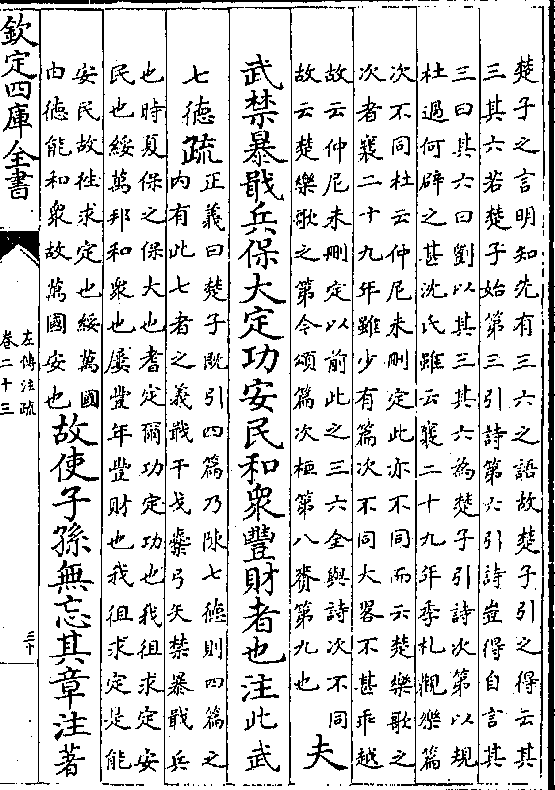 楚子之言明知先有三六之語故楚子引之得云其
三其六若楚子始第三引詩第六引詩豈得自言其
三曰其六曰劉以其三其六為楚子引詩次第以規
杜過何辟之甚沈氏雖云襄二十九年季札觀樂篇
次不同杜云仲尼未刪定此亦不同而云楚樂歌之
次者襄二十九年雖少有篇次不同大畧不甚乖越
故云仲尼未刪定以前此之三六全與詩次不同
故云楚樂歌之第今頌篇次桓第八賚第九也
夫
武禁暴戢兵保大定功安民和衆豐財者也注此武
七德疏
正義曰楚子既引四篇乃陳七德則四篇之
内有此七者之義戢干戈櫜弓矢禁暴戢兵
也時夏保之保大也耆定爾功定功也我徂求定安
民也綏萬邦和衆也屢豐年豐財也我徂求定是能
安民故徃求定也綏萬國
由德能和衆故萬國安也
故使子孫無忘其章注著
欽定四庫全書
左傳注疏
卷二十三
三十